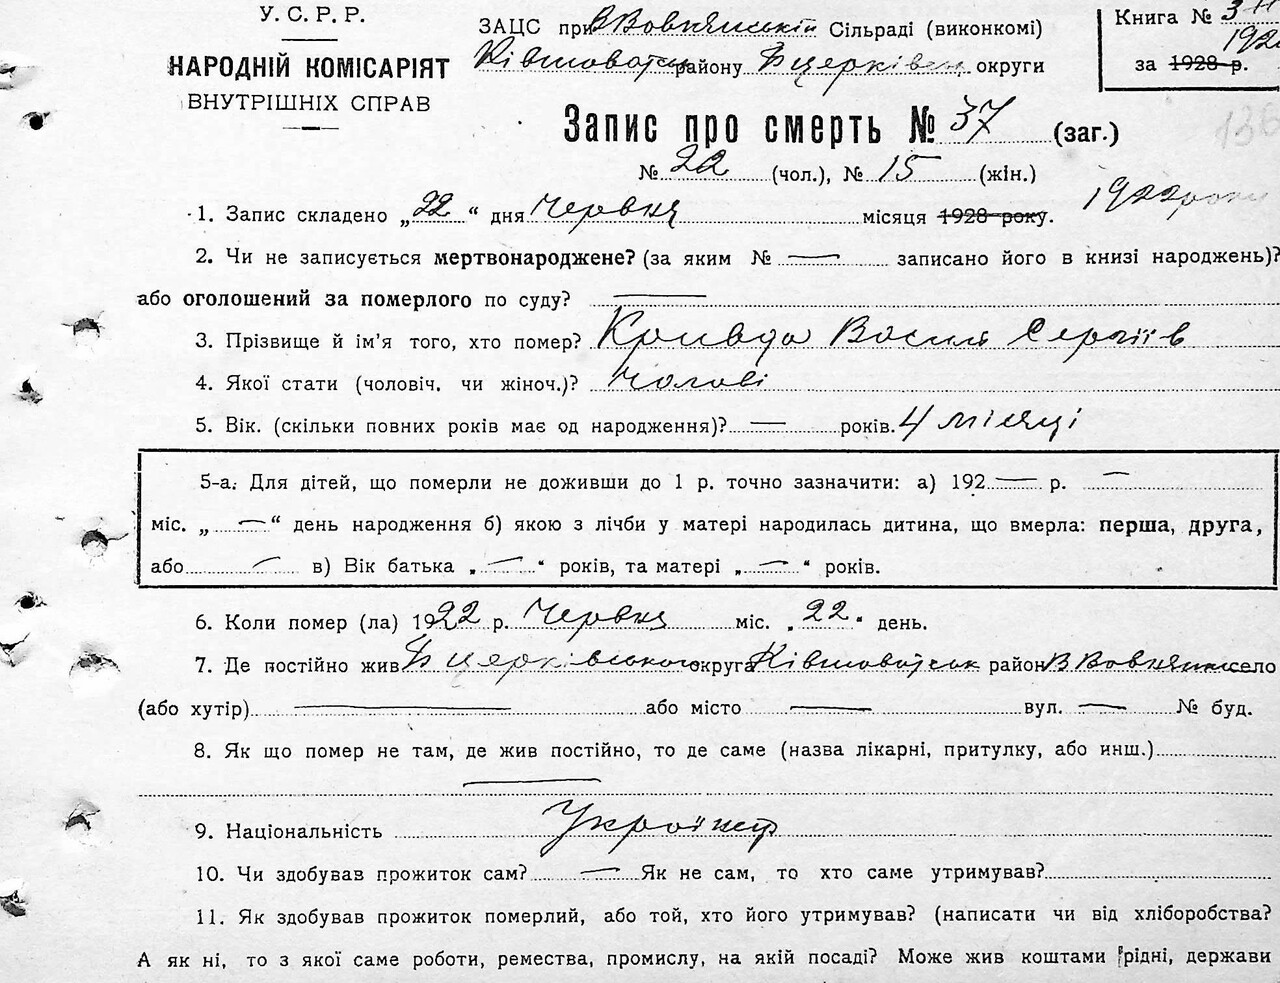 У. С. Р. Р.
НАРОДНІЙ КОМІСАРІЯТ
ВНУТРІШНІХ СПРАВ
ЗАЦС при В Вовнянській Сільраді (виконкомі)
Ківшоватськ району Б церківськ округи
Книга № 3
192
за 1928 р.
Запис про смерть № 37 (заг.)
136
№ 22 (чол.), № 15 (жін.)
1. Запис складено „22“ дня Червня місяця 1928 року. 1922 року
2. Чи не записується мертвонароджене? (за яким № — записано його в книзі народжень)?
або оголошений за померлого по суду? —
3. Прізвище й ім'я того, хто помер? Кривда Василь Сергіїв
4. Якої стати (чоловіч. чи жіноч.)? Чолові
5. Вік. (скільки повних років має од народження)? — років. 4 місяці
5-а. Для дітей, що померли не доживши до 1 р. точно зазначити: а) 192 — р. —
міс. „ — “ день народження б) якою з лічби у матері народилась дитина, що вмерла: перша, друга,
або — в) Вік батька „ — “ років, та матері „ — “ років.
6. Коли помер (ла) 1922 р. Червня міс. „22“ день.
7. Де постійно жив Б церківського округа Ківшоватськ район В Вовнянськ село
(або хутір) — або місто — вул. — № буд.
8. Як що помер не там, де жив постійно, то де саме (назва лікарні, притулку, або инш.)
—
9. Національність Українец
10. Чи здобував прожиток сам? — Як не сам, то хто саме утримував?
11. Як здобував прожиток померлий, або той, хто його утримував? (написати чи від хліборобства?
А як ні, то з якої саме роботи, ремества, промислу, на якій посаді? Може жив коштами рідні, держави